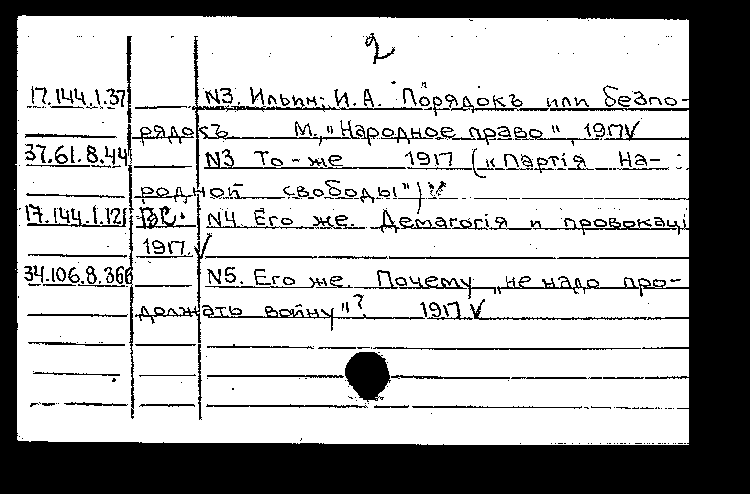 2
17.144.1.37 N3. Ильин, И.А. Порядокъ или безпо-
рядокъ М., "Народное право", 1917 V
37.61.8.44 N3 То-же 1917 (к Партія На-
родной свободы") V
17.144.1.121 N4. Его же. Демагогія и провокаці
1917. V
34.106.8.366 N5. Его же. Почему „не надо про-
должать войну"? 1917 V